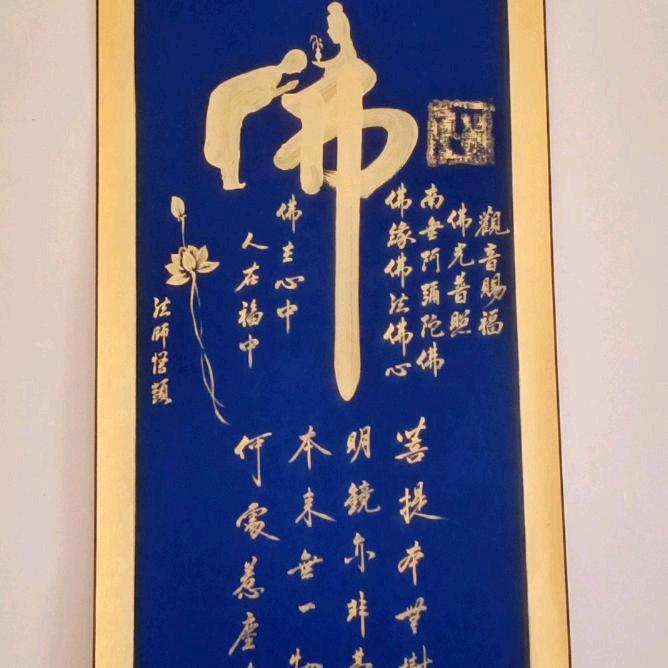 佛
觀音賜福
佛光普照
南無阿彌陀佛
佛緣佛法佛心
佛在心中
人在福中
法師
菩提本無樹
明鏡亦非
本來無一物
何處惹塵